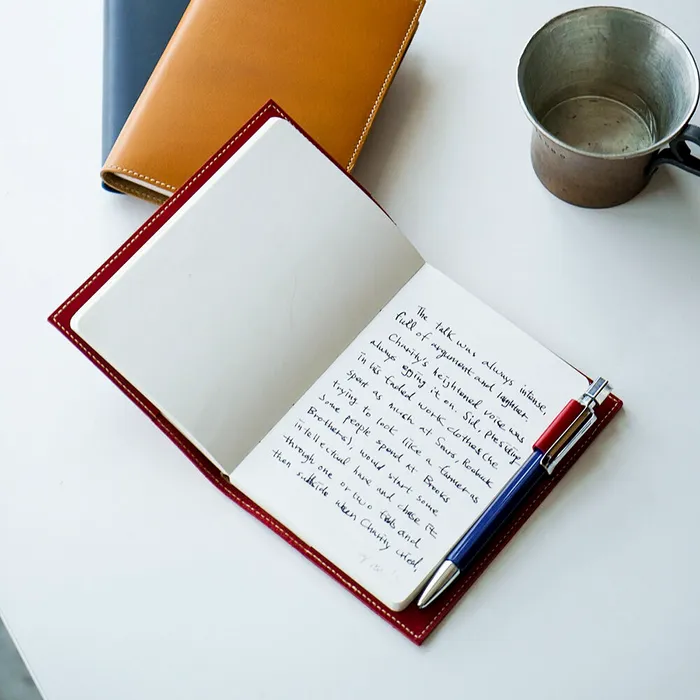 The talk was always intense,
full of argument and laughter
Charity's heightened voice was
always egging it on. Sid, presiding
in his faded work clothes (he
spent as much at Sears, Roebuck
trying to look like a farmer as
some people spend at Brooks
Brothers), would start some
intellectual hare and chase it
through one or two fields and
then subside when Charity cried,